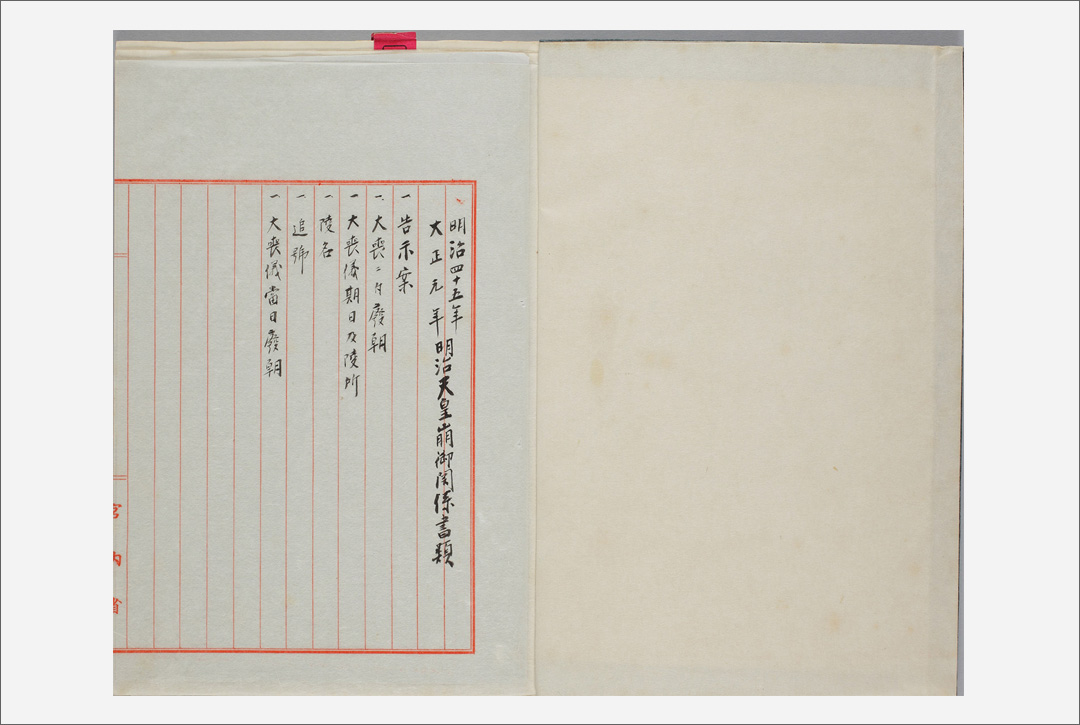 明治四十五年
大正元年
明治天皇崩御関係書類
一 告示案
一 大喪ニ付廢朝
一 大喪儀期日及陵所
一 陵名
一 追號
一 大喪儀當日廢朝
宮内省